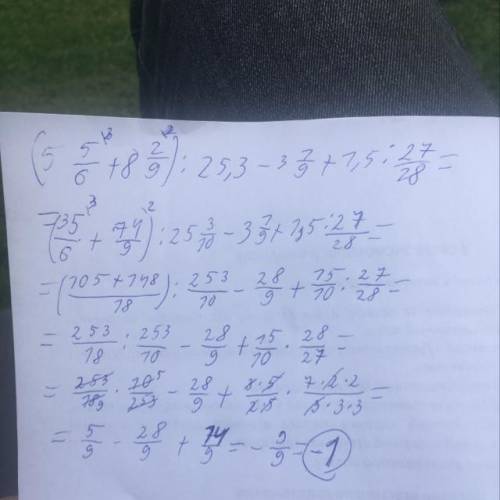 (5 5/6 + 8 2/9) : 25,3 - 3 1/9 + 1,5 : 27/28 =
= (35/6 + 74/9) : 25 3/10 - 3 1/9 + 1,5 : 27/28 =
= ((105+148)/18) : 253/10 - 28/9 + 15/10 : 27/28 =
= 253/18 : 253/10 - 28/9 + 15/10 · 28/27 =
= 253/18 · 10/253 - 28/9 + 3·5/2·5 · 7·2·2/3·3·3 =
= 5/9 - 28/9 + 14/9 = - 9/9 = -1